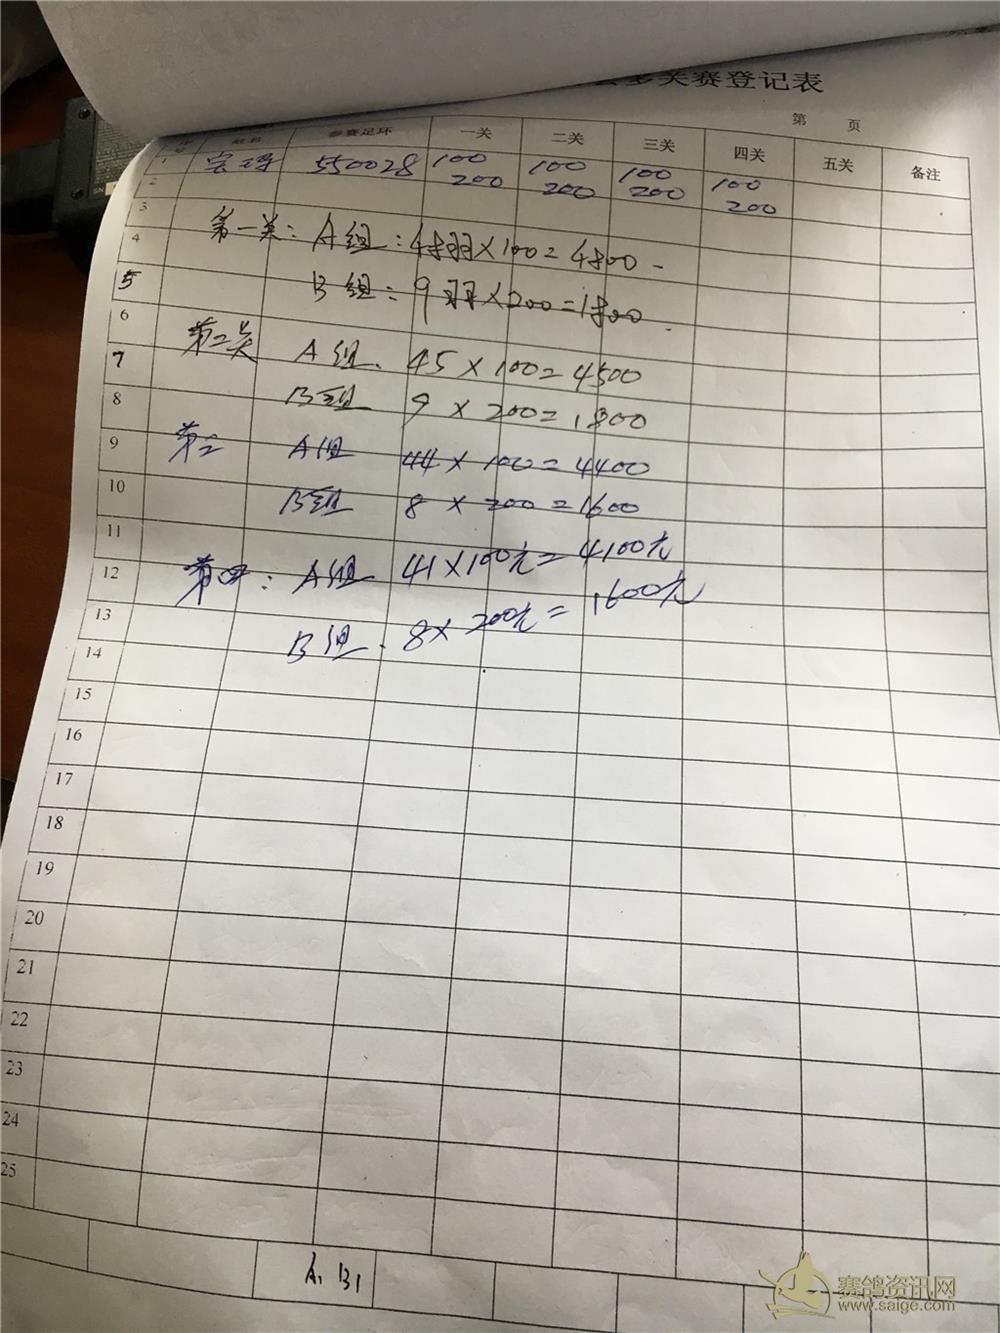 多关赛登记表
第 页
姓名 参赛足环 一关 二关 三关 四关 五关 备注
1 550028 100 100 100 100
2 200 200 200 200
3
4 第一关: A组: 48羽×100=4800
5 B组: 9羽×200=1800
6
7 第二关 A组. 45×100=4500
8 B组 9×200=1800
9 第三 A组 44×100=4400
10 B组 8×200=1600
11
12 第四: A组 41×100元=4100元
13 B组. 8×200元=1600元
14
15
16
17
18
19
20
21
22
23
24
25
A1 B1
赛鸽资讯网
www.saige.com